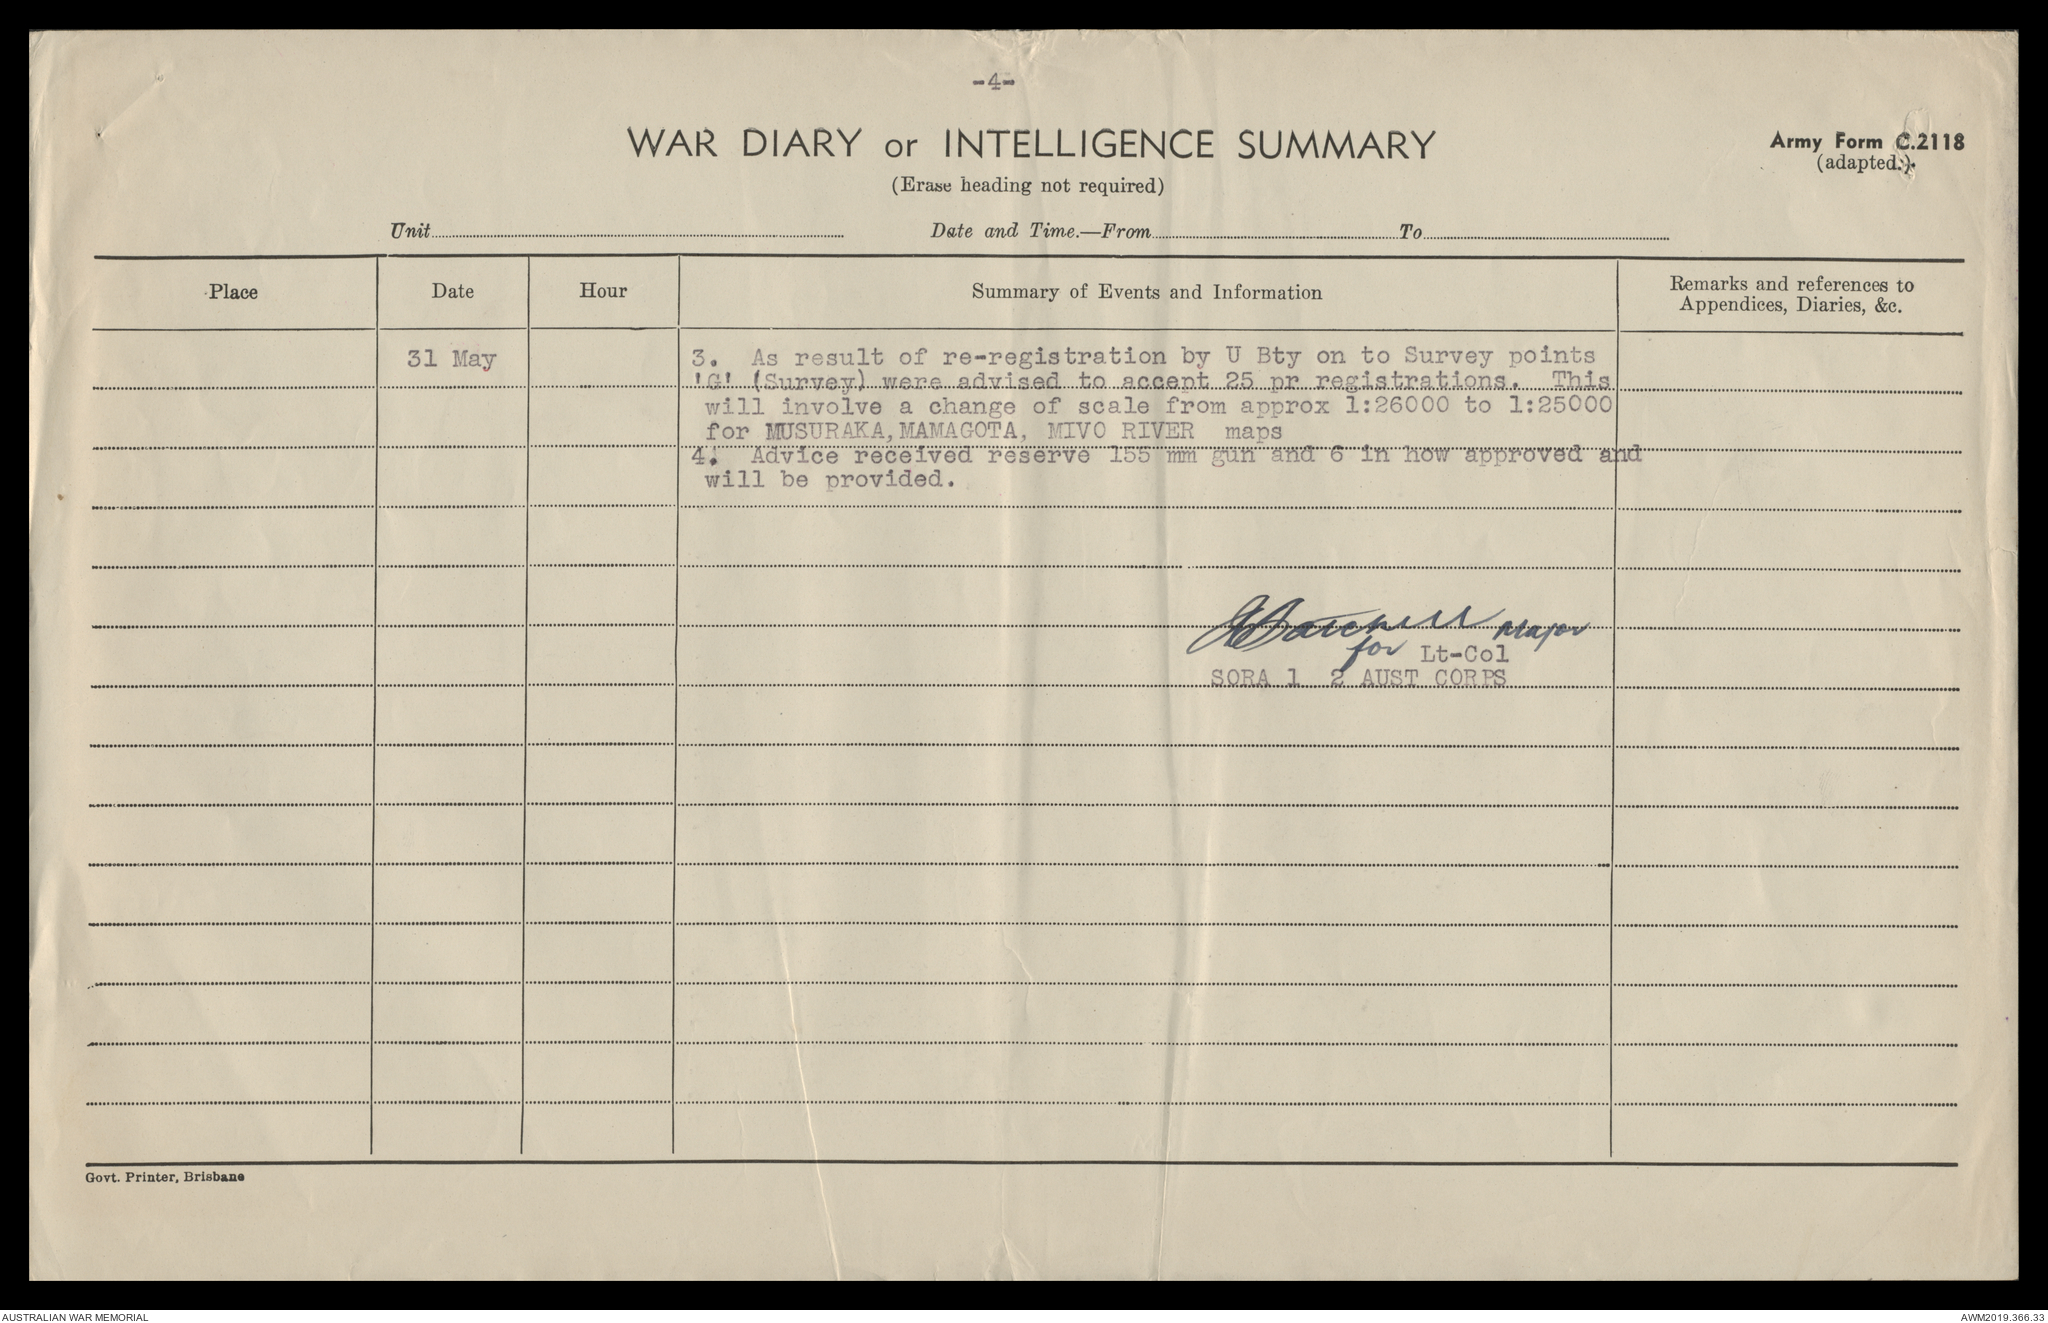 -4-
WAR DIARY or INTELLIGENCE SUMMARY
Army Form C.2118
(adapted.)
(Erase heading not required)
Unit
Date and Time.—From
To
Place
Date
Hour
Summary of Events and Information
Remarks and references to
Appendices, Diaries, &c.
31 May
3. As result of re-registration by U Bty on to Survey points
'G' (Survey) were advised to accept 25 pr registrations. This
will involve a change of scale from approx 1:26000 to 1:25000
for MUSURAKA, MAMAGOTA, MIVO RIVER maps
4. Advice received reserve 155 mm gun and 6 in how approved and
will be provided.
Major
for Lt-Col
SORA 1 2 AUST CORPS
Govt. Printer, Brisbane
AUSTRALIAN WAR MEMORIAL
AWM2019.366.33